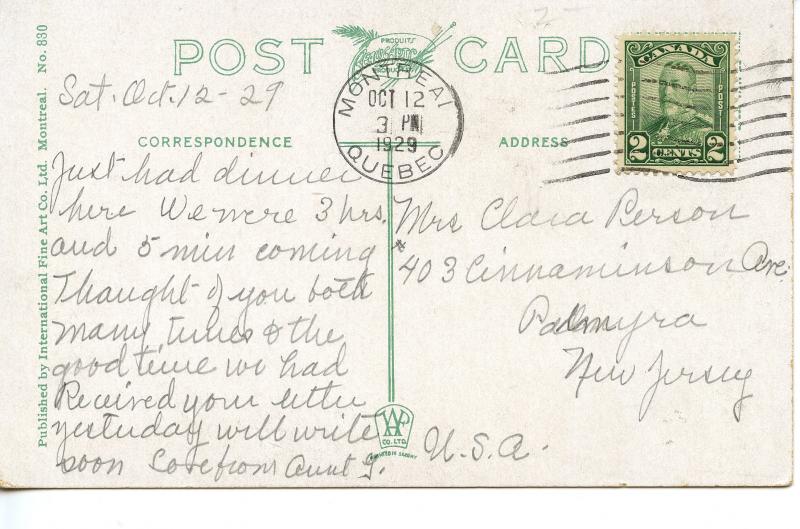 POST CARD
PRODUITS
MONTREAL
OCT 12
3 PM
1929
QUEBEC
CANADA
POSTES
POST
2 CENTS 2
Published by International Fine Art Co. Ltd. Montreal. No. 830
Sat. Oct. 12-29
CORRESPONDENCE
Just had dinner
here We were 3 hrs.
and 5 min coming
Thought of you both
many times & the
good time we had
Received your letter
yesterday will write
soon Love from Aunt J.
ADDRESS
Mrs Clara Person
403 Cinnaminson Ave.
Palmyra
New Jersey
U.S.A.
CO. LTD.
PRINTED IN SAXONY